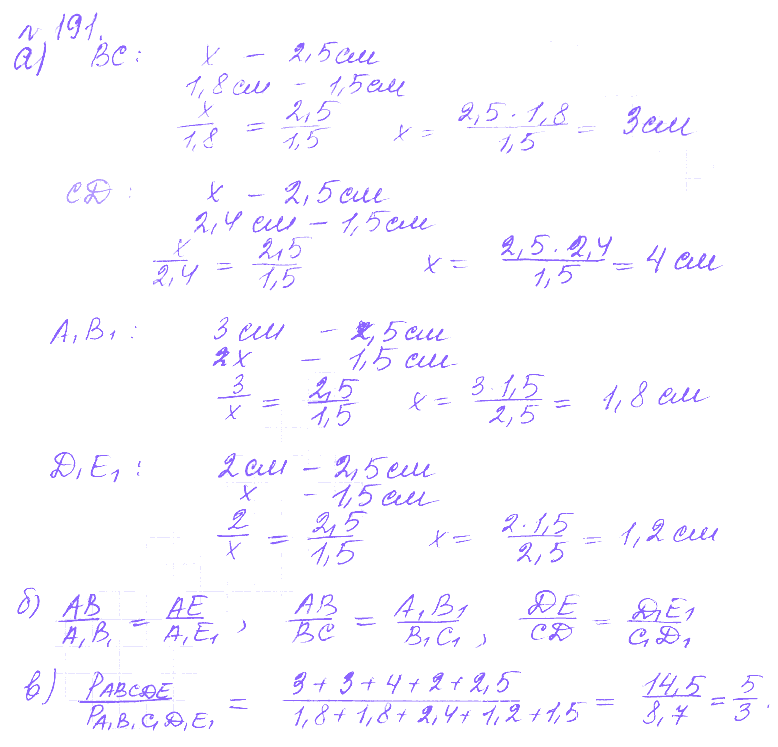 № 191.
а) BC: x – 2,5см
1,8см – 1,5см
x/1,8 = 2,5/1,5 x = 2,5·1,8/1,5 = 3см
CD: x – 2,5см
2,4см – 1,5см
x/2,4 = 2,5/1,5 x = 2,5·2,4/1,5 = 4см
A₁B₁: 3см – 2,5см
2x – 1,5см
3/x = 2,5/1,5 x = 3·1,5/2,5 = 1,8см
D₁E₁: 2см – 2,5см
x – 1,5см
2/x = 2,5/1,5 x = 2·1,5/2,5 = 1,2см
б) AB/A₁B₁ = AE/A₁E₁, AB/BC = A₁B₁/B₁C₁, DE/CD = D₁E₁/C₁D₁
в) PABCDE/PA₁B₁C₁D₁E₁ = 3+3+4+2+2,5/1,8+1,8+2,4+1,2+1,5 = 14,5/8,7 = 5/3.